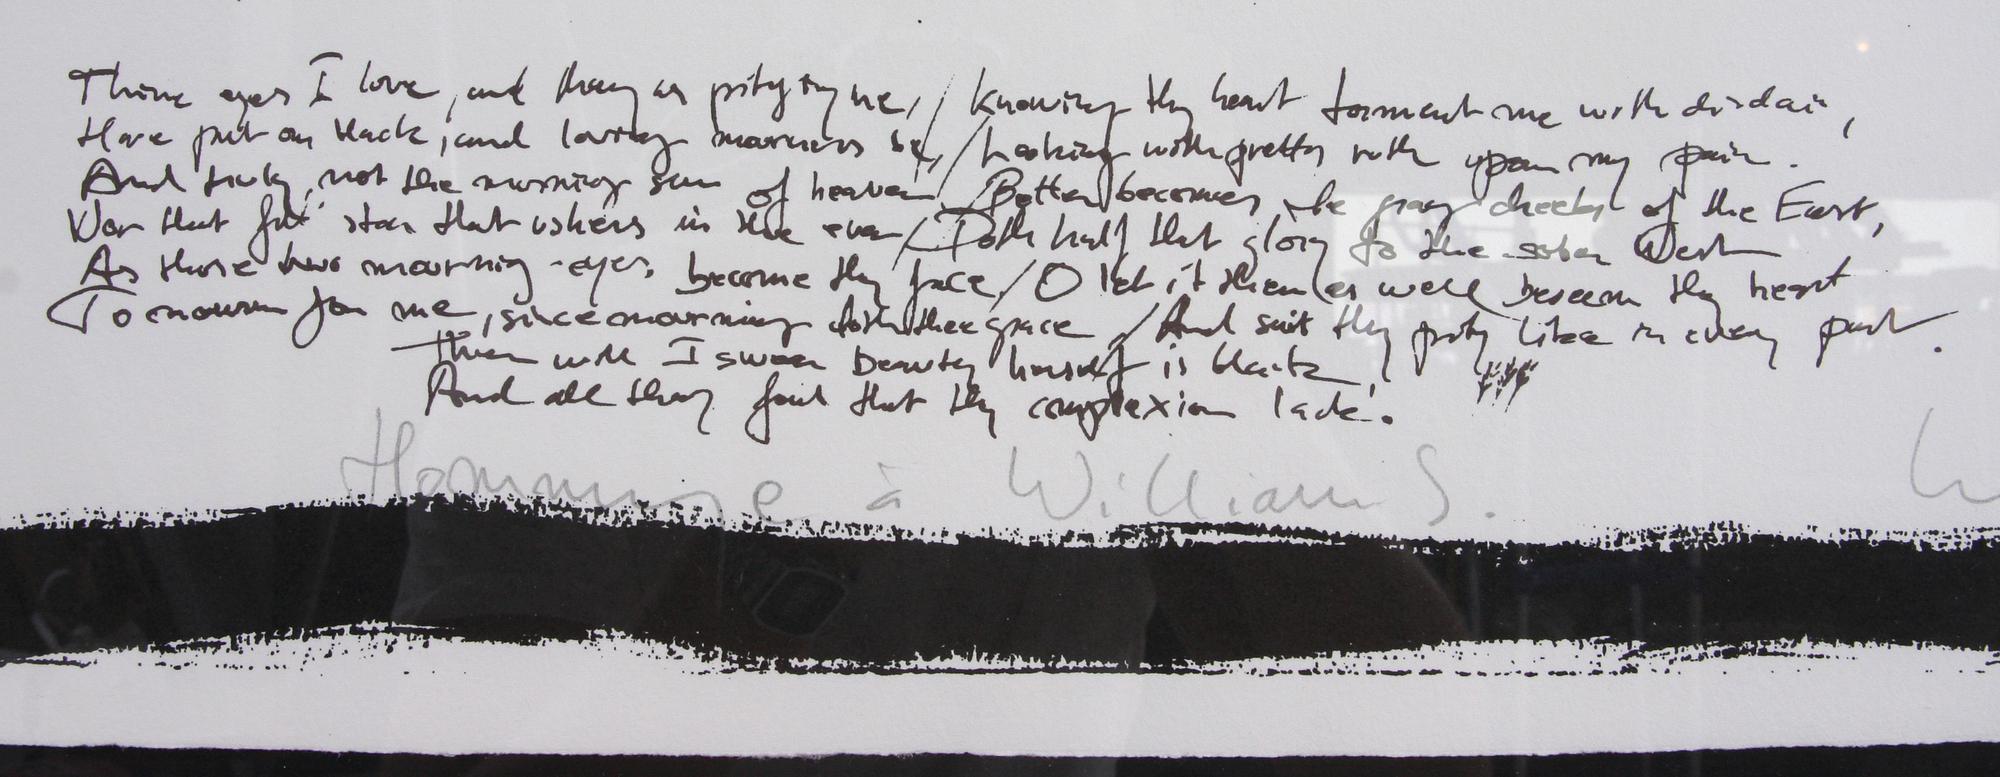 Thine eyes I love, and they as pitying me, / Knowing thy heart torment me with disdain,
Have put on black, and loving mourners be, / Looking with pretty ruth upon my pain.
And truly, not the morning sun of heaven / Better becomes the gray cheeks of the East,
Nor that full star that ushers in the even / Doth half that glory to the sober West
As those two mourning-eyes, become thy face / O let it then as well beseem thy heart
To mourn for me, since mourning doth thee grace / And suit thy pity like in every part.
Then will I swear beauty herself is black,
And all they foul that thy complexion lack.
Hommage à William S.